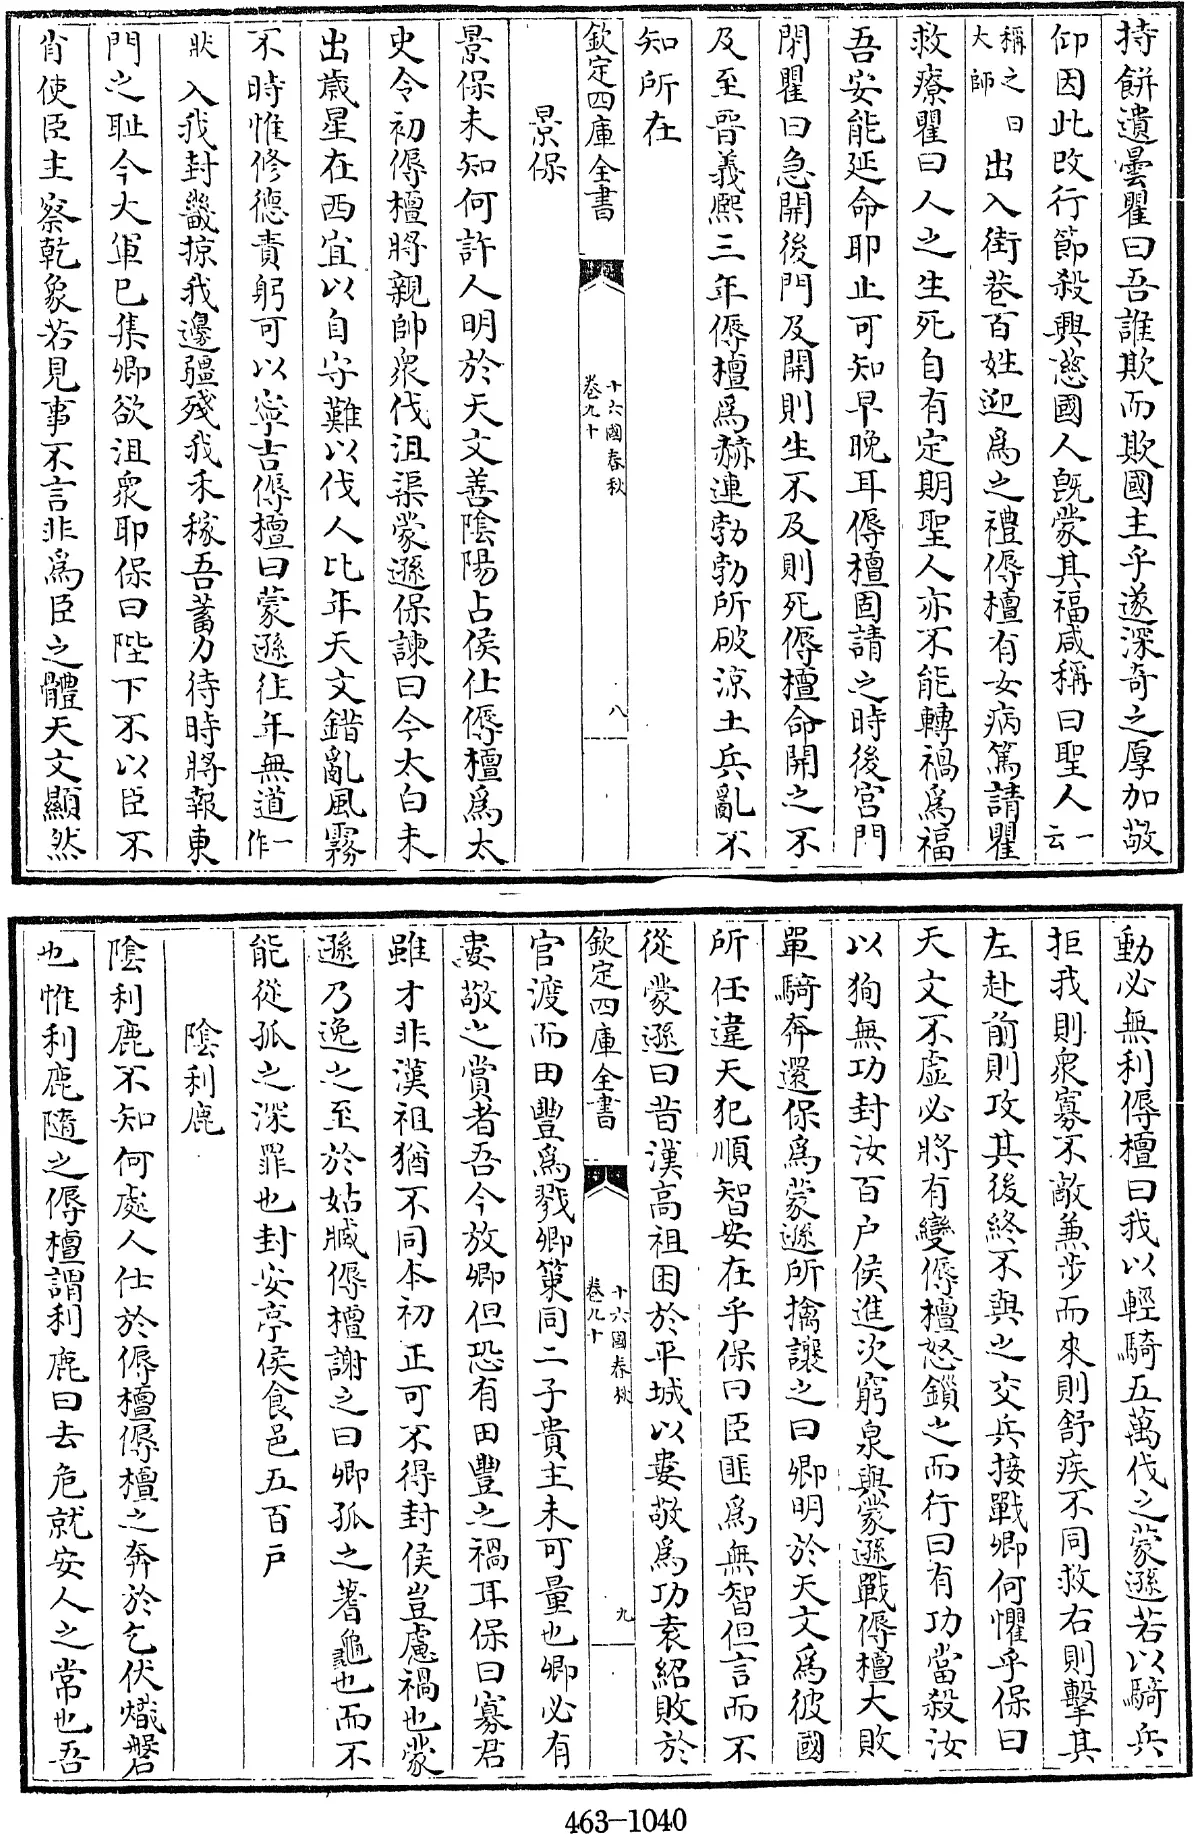 持餅遺曇瞿曰吾誰欺而欺國主乎遂深奇之厚加敬
仰因此改行節殺興慈國人既蒙其福咸稱曰聖人一云
稱之曰大師出入街巷百姓迎為之禮傉檀有女病篤請瞿
救療瞿曰人之生死自有定期聖人亦不能轉禍為福
吾安能延命耶止可知早晚耳傉檀固請之時後宫門
閉瞿曰急開後門及開則生不及則死傉檀命開之不
及至晉義熙三年傉檀為赫連勃勃所破涼土兵亂不
知所在
欽定四庫全書 十六國春秋 卷九十 八
景保
景保未知何許人明於天文善陰陽占侯仕傉檀為太
史令初傉檀將親帥衆伐沮渠蒙遜保諫曰今太白未
出歲星在西宜以自守難以伐人比年天文錯亂風霧
不時惟修德責躬可以寧吉傉檀曰蒙遜往年無道一作
狀入我封畿掠我邊疆殘我禾稼吾蓄力待時將報東
門之恥今大軍已集卿欲沮衆耶保曰陛下不以臣不
肖使臣主察乾象若見事不言非為臣之體天文顯然
動必無利傉檀曰我以輕騎五萬伐之蒙遜若以騎兵
拒我則衆寡不敵兼步而來則舒疾不同救右則擊其
左赴前則攻其後終不與之交兵接戰卿何懼乎保曰
天文不虛必將有變傉檀怒鎖之而行曰有功當殺汝
以狥無功封汝百户侯進次窮泉與蒙遜戰傉檀大敗
單騎奔還保為蒙遜所擒讓之曰卿明於天文為彼國
所任違天犯順智安在乎保曰臣匪為無智但言而不
從蒙遜曰昔漢高祖困於平城以婁敬為功袁紹敗於
欽定四庫全書 十六國春秋 卷九十 九
官渡而田豐為戮卿策同二子貴主未可量也卿必有
婁敬之賞者吾今放卿但恐有田豐之禍耳保曰寡君
雖才非漢祖猶不同本初正可不得封侯豈慮禍也蒙
遜乃逸之至於姑臧傉檀謝之曰卿孤之蓍龜也而不
能從孤之深罪也封安亭侯食邑五百戶
陰利鹿
陰利鹿不知何處人仕於傉檀傉檀之奔於乞伏熾磐
也惟利鹿隨之傉檀謂利鹿曰去危就安人之常也吾
463-1040